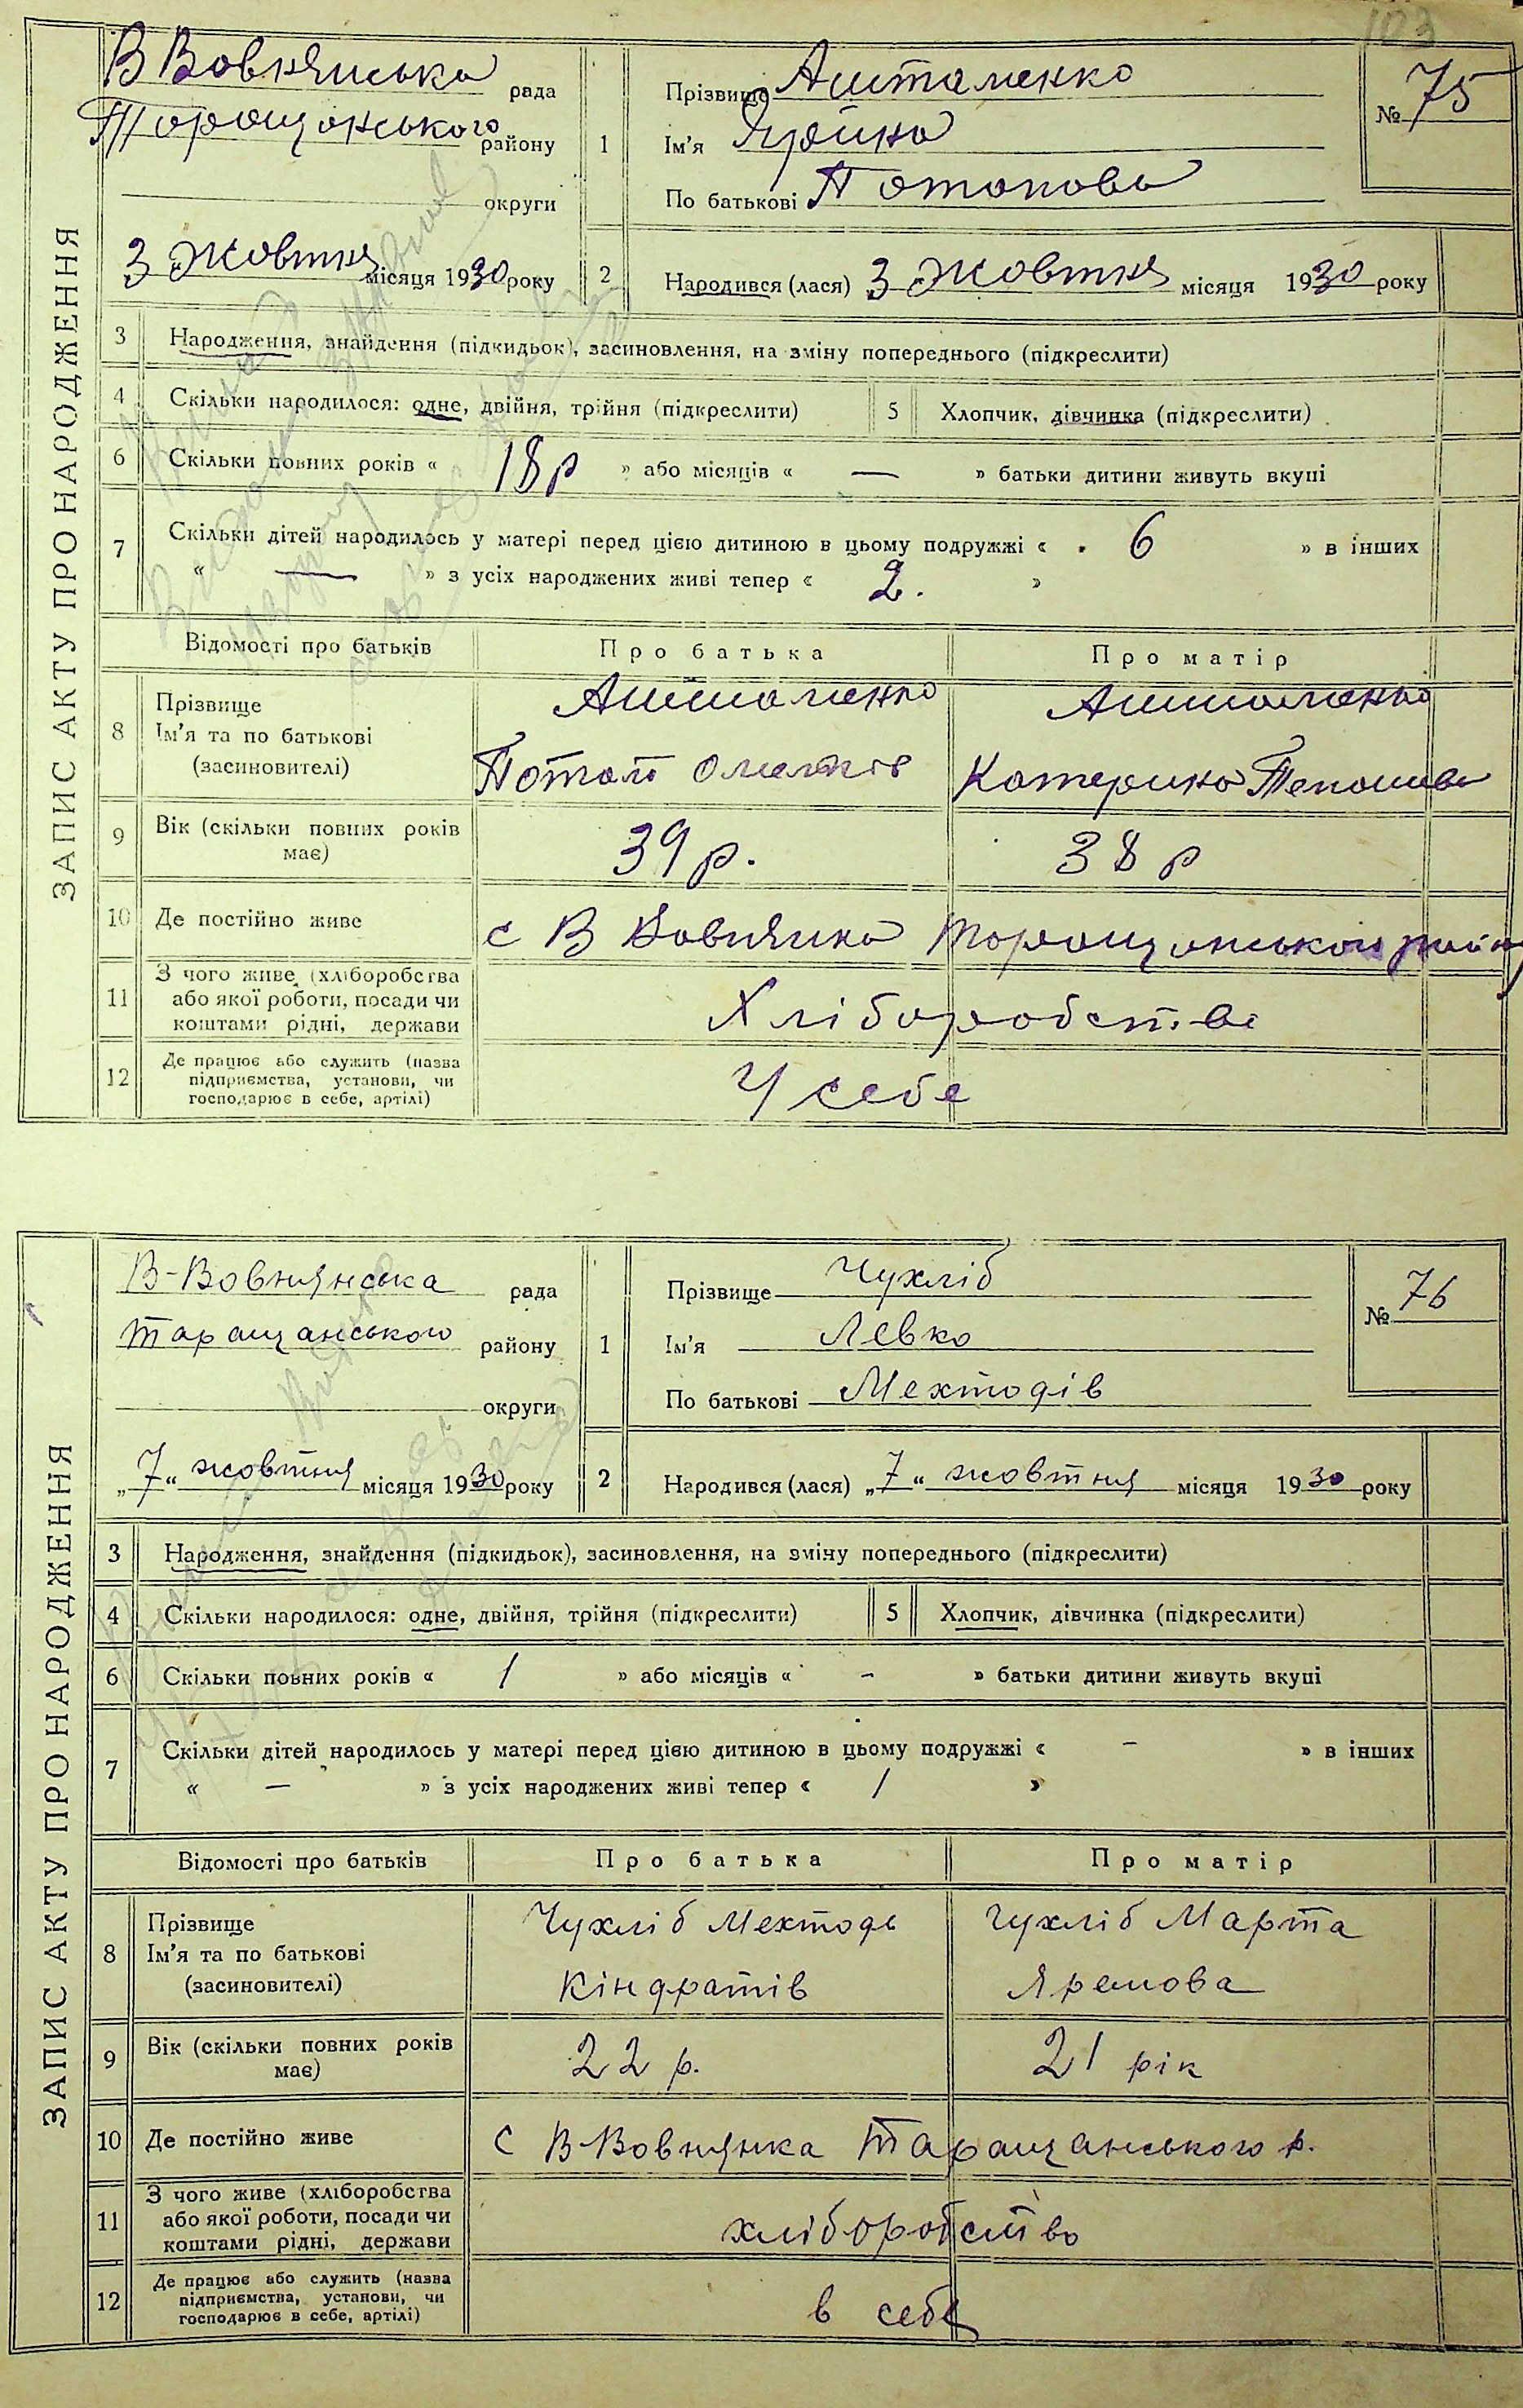 103
В Вовнянська рада
Таращанського району
округи
3 Жовтня місяця 1930 року
1
Прізвище
Ім'я
По батькові Потапова
№ 75
2 Народився (лася) 3 Жовтня місяця 1930 року
ЗАПИС АКТУ ПРО НАРОДЖЕННЯ
3 Народження, знайдення (підкидьок), засиновлення, на зміну попереднього (підкреслити)
4 Скільки народилося: одне, двійня, трійня (підкреслити) 5 Хлопчик, дівчинка (підкреслити)
6 Скільки повних років « 18 р » або місяців « — » батьки дитини живуть вкупі
7 Скільки дітей народилось у матері перед цією дитиною в цьому подружжі « 6 » в інших
« — » з усіх народжених живі тепер « 2. »
Відомості про батьків Про батька Про матір
8 Прізвище
Ім'я та по батькові Потап Катерина
(засиновителі)
9 Вік (скільки повних років має) 39 р. 38 р
10 Де постійно живе с В Вовнянка Таращанського району
11 З чого живе (хліборобства або якої роботи, посади чи коштами рідні, держави Хліборобство
12 Де працює або служить (назва підприємства, установи, чи господарює в себе, артілі) У себе
В-Вовнянська рада
Таращанського району
округи
„7“ жовтня місяця 1930 року
1
Прізвище Чухліб
Ім'я Левко
По батькові Мехтодів
№ 76
2 Народився (лася) „7“ жовтня місяця 1930 року
ЗАПИС АКТУ ПРО НАРОДЖЕННЯ
3 Народження, знайдення (підкидьок), засиновлення, на зміну попереднього (підкреслити)
4 Скільки народилося: одне, двійня, трійня (підкреслити) 5 Хлопчик, дівчинка (підкреслити)
6 Скільки повних років « 1 » або місяців « - » батьки дитини живуть вкупі
7 Скільки дітей народилось у матері перед цією дитиною в цьому подружжі « - » в інших
« — » з усіх народжених живі тепер « 1 »
Відомості про батьків Про батька Про матір
8 Прізвище Чухліб Мехтодь Чухліб Марта
Ім'я та по батькові
(засиновителі) Кіндратів Яремова
9 Вік (скільки повних років має) 22 р. 21 рік
10 Де постійно живе с В-Вовнянка Таращанського р.
11 З чого живе (хліборобства або якої роботи, посади чи коштами рідні, держави хліборобство
12 Де працює або служить (назва підприємства, установи, чи господарює в себе, артілі) в себе